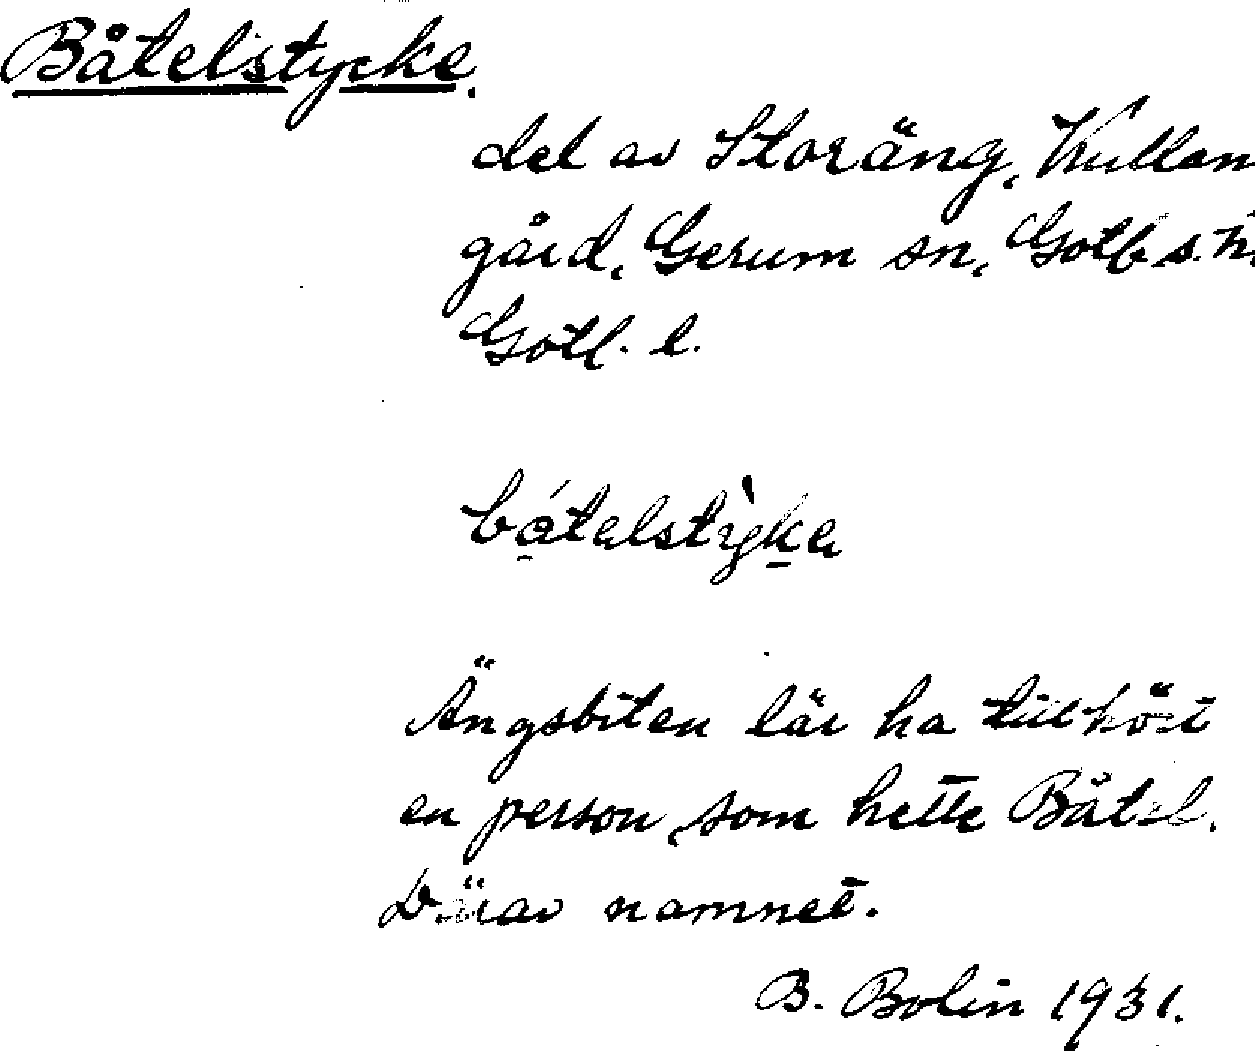 Båtelstycke.
del av Storäng, Kullan
gård, Gerum sn, Gotl. s. h.
Gotl. l.
båtelstyke
Ängsbiten lär ha tillhört
en person, som hette Båtel.
Därav namnet.
B. Bolin 1931.